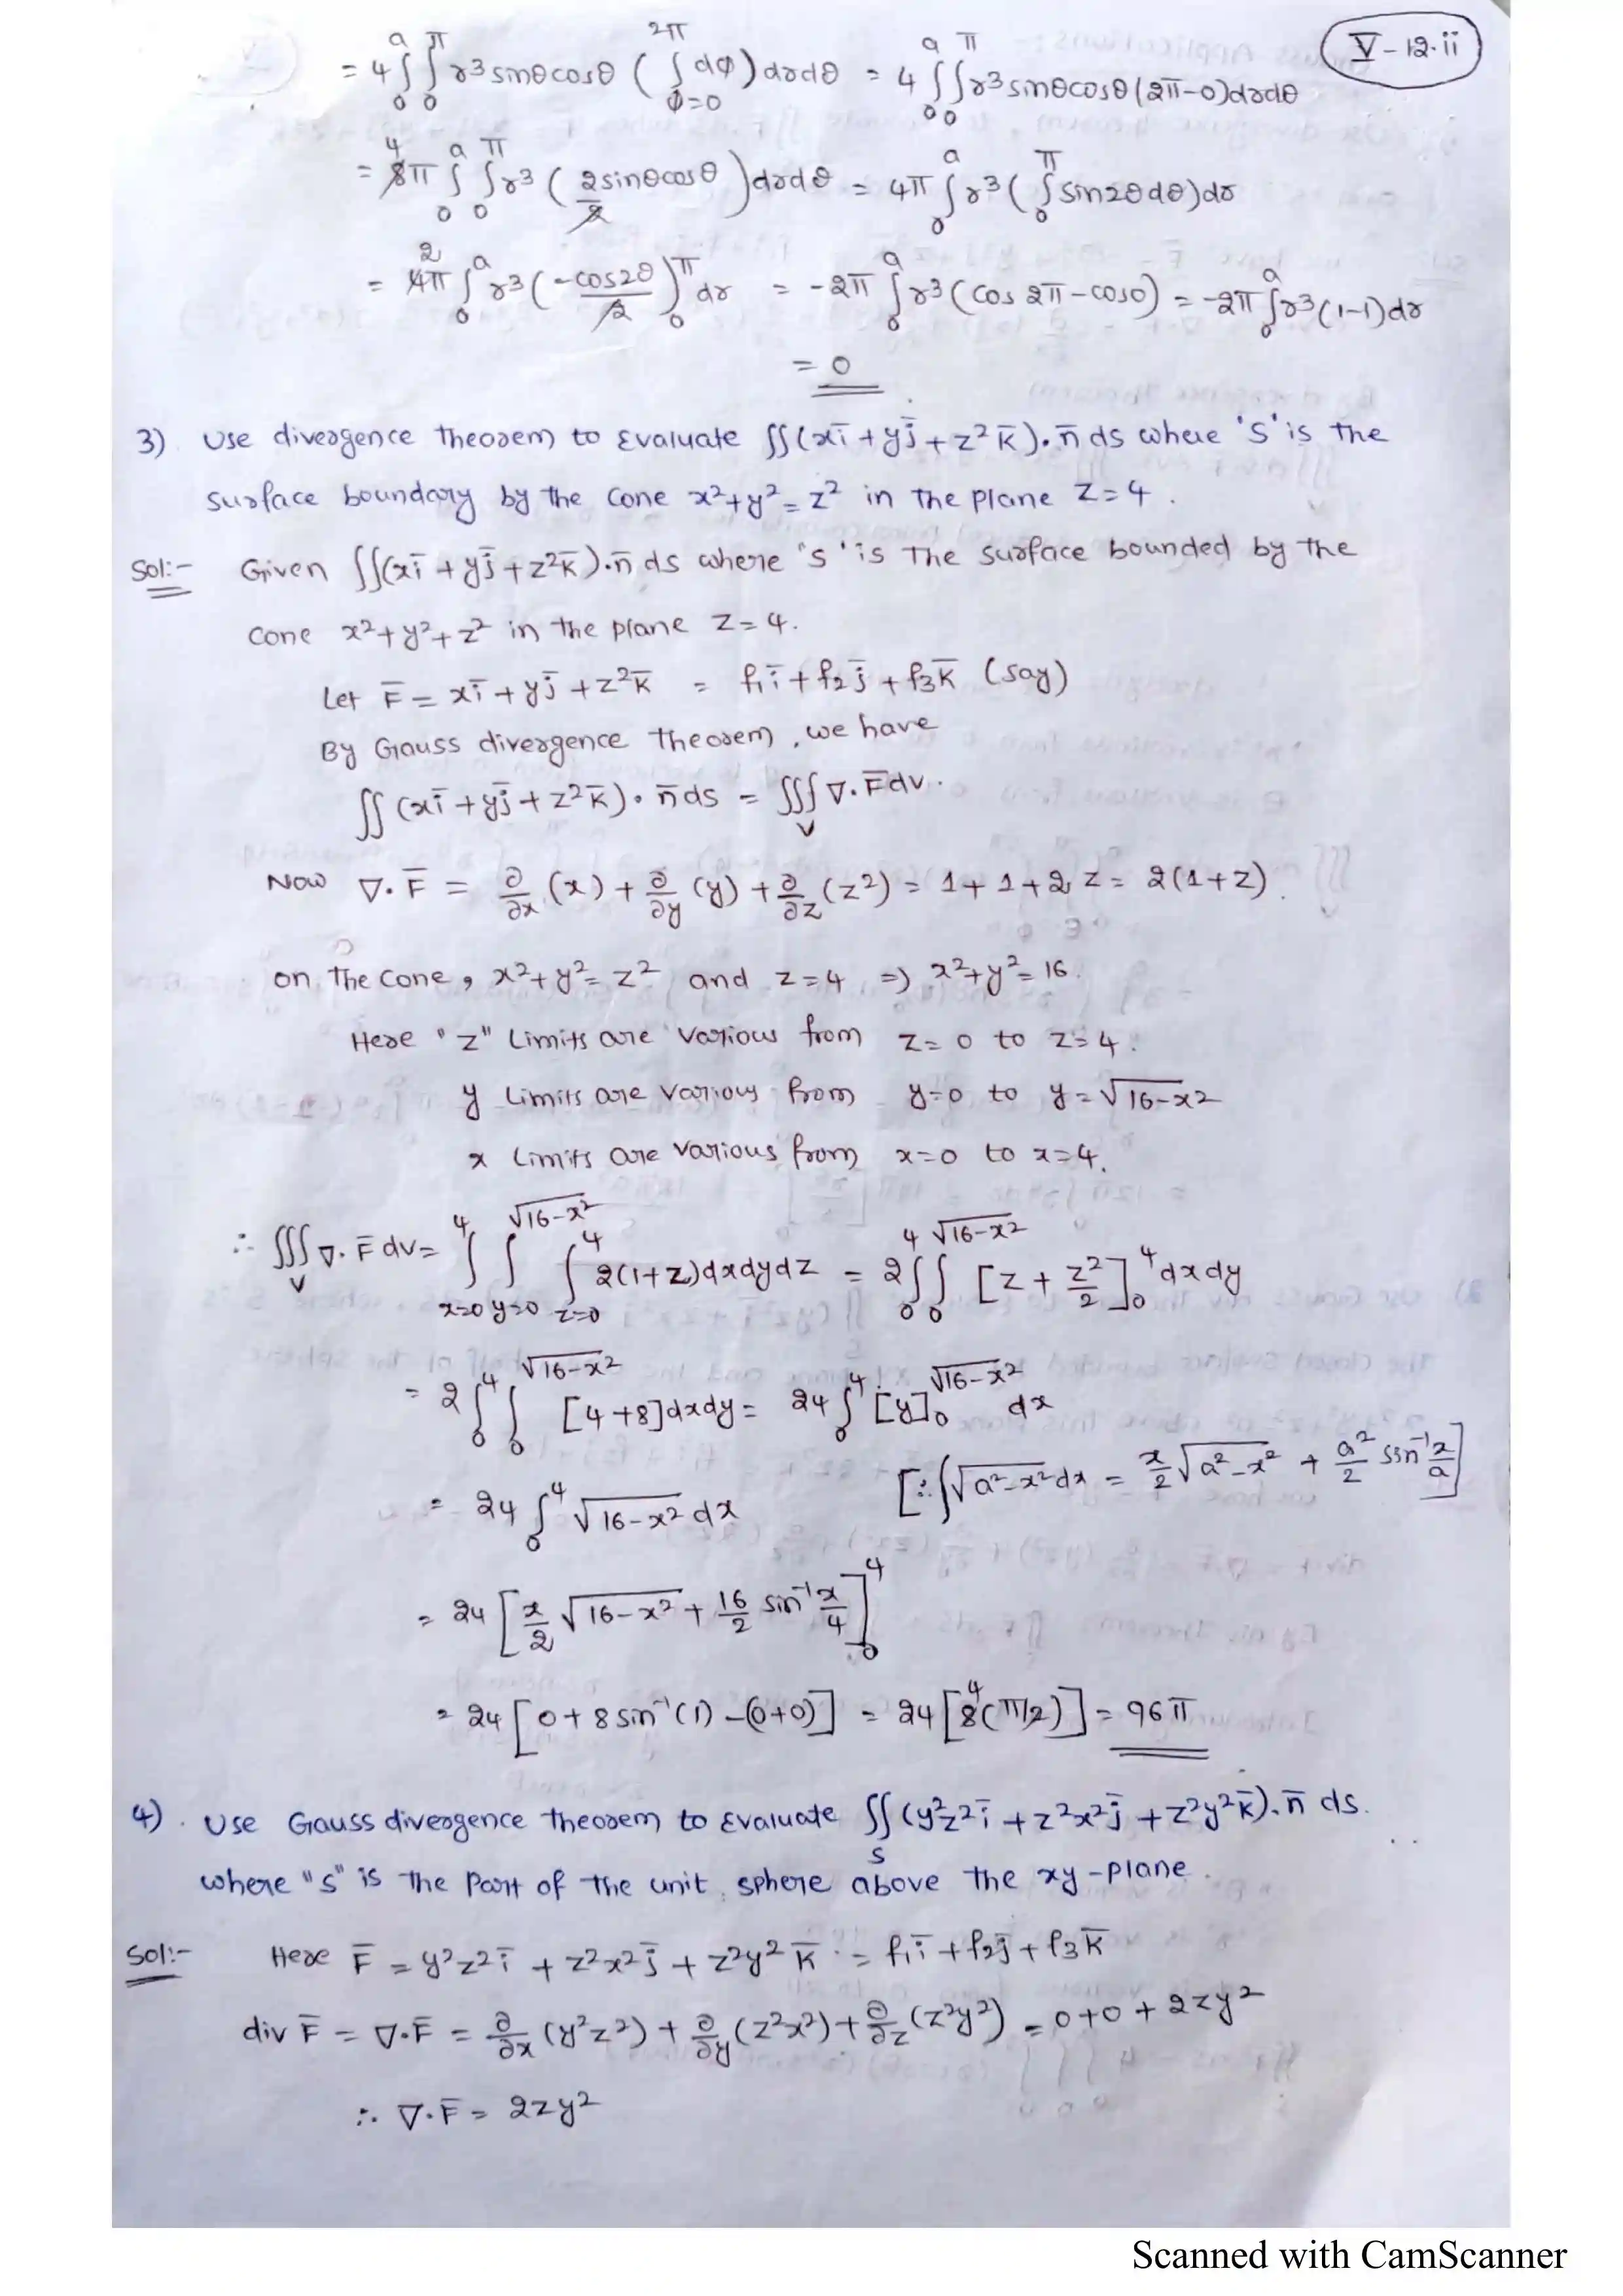 V-12.ii
= 4 ∫₀ᵃ ∫₀^π r³ sinθcosθ ( ∫_{φ=0}^{2π} dφ ) drdθ = 4 ∫₀ᵃ ∫₀^π r³ sinθcosθ (2π-0) drdθ
= 8̸ 4π ∫₀ᵃ ∫₀^π r³ ( 2sinθcosθ / 2̸ ) drdθ = 4π ∫₀ᵃ r³ ( ∫₀^π sin2θdθ ) dr
= 4̸ 2π ∫₀ᵃ r³ ( -cos2θ / 2̸ )₀^π dr = -2π ∫₀ᵃ r³ (cos 2π - cos0) = -2π ∫₀ᵃ r³ (1-1)dr
= 0
3) Use divergence theorem to Evaluate ∫∫(xī + yj̄ + z² k̄).n̄ ds where 's' is the
surface boundary by the cone x²+y² = z² in the plane z=4.
Sol:- Given ∫∫(xī + yj̄ + z²k̄).n̄ ds where "s' is The surface bounded by the
cone x²+y²+z² in the plane z=4.
Let F̄ = xī + yj̄ + z²k̄ = f₁ī + f₂j̄ + f₃k̄ (say)
By Gauss divergence theorem, we have
∫∫ (xī + yj̄ + z²k̄). n̄ds = ∫∫∫_V ∇.F̄dv.
Now ∇.F̄ = ∂/∂x (x) + ∂/∂y (y) + ∂/∂z (z²) = 1+1+2z = 2(1+z).
on The cone, x²+y² = z² and z=4 ⇒ x²+y² = 16.
Here "z" Limits are various from z=0 to z=4.
y Limits are various from y=0 to y=√(16-x²)
x Limits are various from x=0 to x=4.
∴ ∫∫∫_V ∇.F̄dv = ∫_{x=0}^4 ∫_{y=0}^{√(16-x²)} ∫_{z=0}^4 2(1+z)dxdydz = 2 ∫₀⁴ ∫₀^{√(16-x²)} [z + z²/2]₀⁴ dxdy
= 2 ∫₀⁴ ∫₀^{√(16-x²)} [4+8]dxdy = 24 ∫₀⁴ [y]₀^{√(16-x²)} dx
= 24 ∫₀⁴ √(16-x²) dx [∵ ∫√(a²-x²)dx = x/2 √(a²-x²) + a²/2 sin⁻¹ x/a]
= 24 [ x/2 √(16-x²) + 16/2 sin⁻¹ x/4 ]₀⁴
= 24 [ 0 + 8 sin⁻¹(1) - (0+0) ] = 24 [ 8̸ 4(π/2) ] = 96π
4). Use Gauss divergence theorem to Evaluate ∫∫_S (y²z²ī + z²x²j̄ + z²y²k̄).n̄ ds.
where "s" is the part of the unit sphere above the xy-plane.
Sol:- Here F̄ = y²z²ī + z²x²j̄ + z²y² k̄ = f₁ī + f₂j̄ + f₃k̄
div F̄ = ∇.F̄ = ∂/∂x (y²z²) + ∂/∂y (z²x²) + ∂/∂z (z²y²) = 0+0+2zy²
∴ ∇.F̄ = 2zy²
Scanned with CamScanner